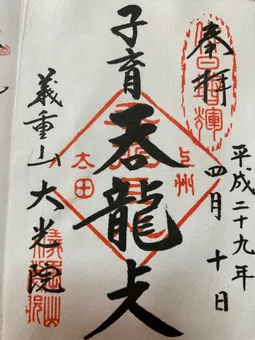 奉拝
平成二十九年
四月十日
子育
呑龍上人
上州
太田
義重山大光院